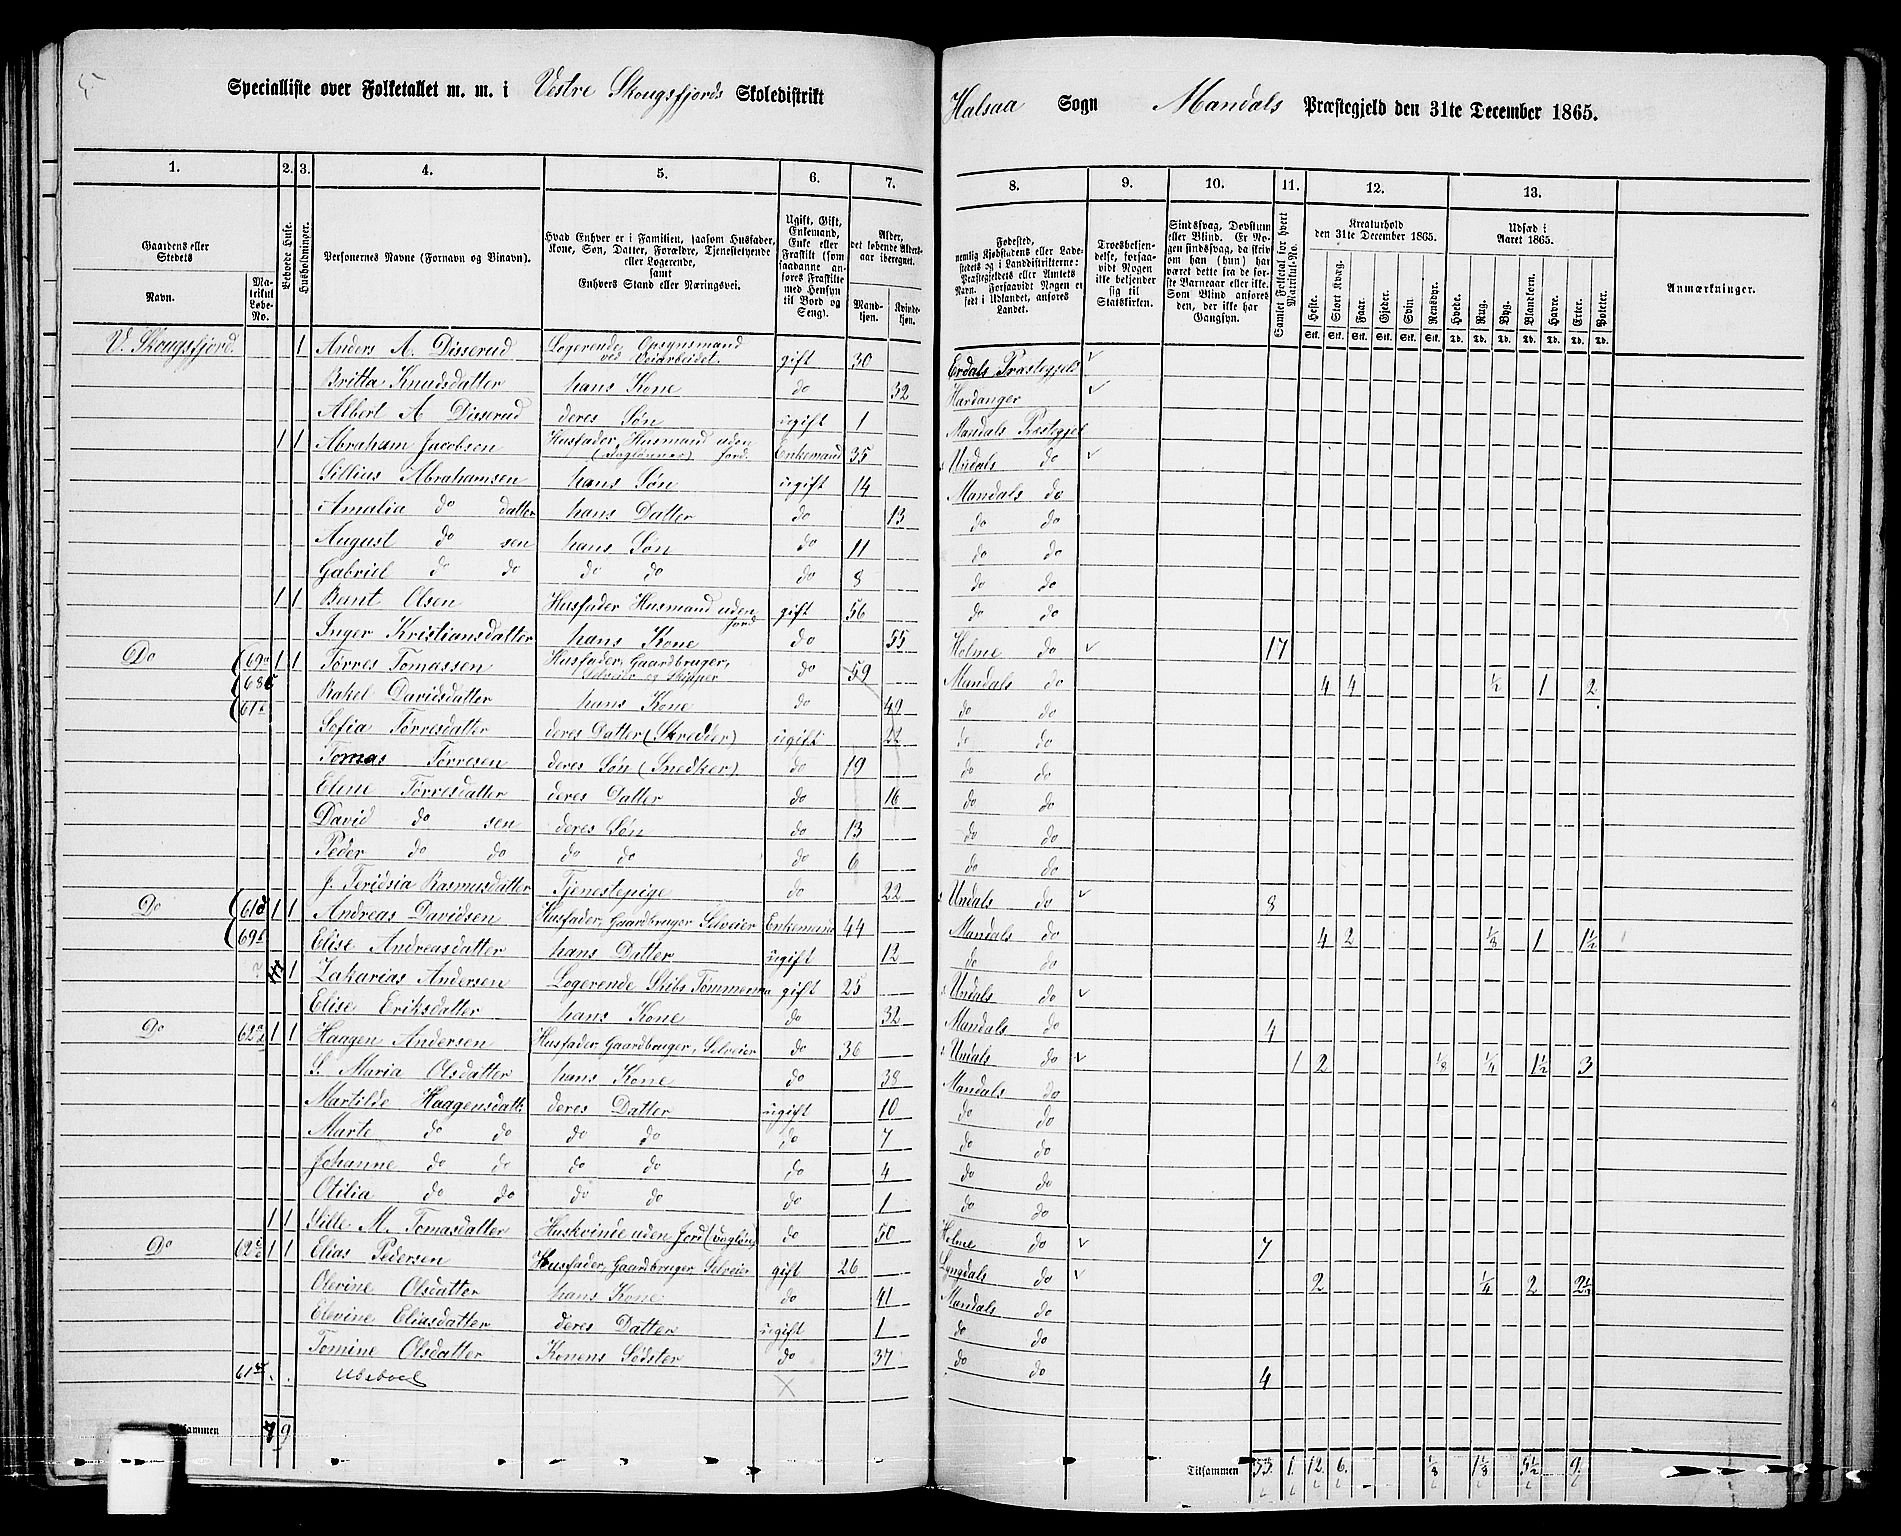 Specialliste over Folketallet m. m. i Vestre Skougsfjords Skoledistrikt Halsaa Sogn Mandals Præstegjeld den 31te December 1865.
1. 2. 3. 4. 5. 6. 7. 8. 9. 10. 11. 12. 13.
Gaardens eller Stedets Navn. Matrikul Løbe-No. Beboede Huse. Husholdninger. Personernes Navne (Fornavn og Tilnavn). Hvad Enhver er i Familien, saasom Husfader, Kone, Søn, Datter, Forældre, Tjenestetyende eller Logerende, samt Enhvers Stand eller Næringsvei. Alder, det løbende Alders-aar iberegnet. Mand-kjøn. Kvinde-kjøn. Fødested, Kreaturhold den 31te December 1865. Udsæd i Aaret 1865. Anmærkninger.
Heste. Stort Kvæg. Faar. Gjeder. Svin. Rensdyr. Hvede. Rug. Byg. Blandkorn. Havre. Erter. Poteter.
V. Skougsfjord. 1 Anders A. Disserud Logerende, Opsynsmand ved Veiarbeidet. gift 30 Præstegjeld
Britta Knudsdatter hans Kone do 32 Hardanger
Albert A Disserud deres Søn ugift 1 Mandals Præstegjel
1 1 Abraham Jacobsen Husfader, Husmand uden Jord. Enkemand 35 Undals do
Sillius Abrahamsen hans Søn ugift 14 Mandals do
Amalia do datter hans Datter do 13 do do
August do sen hans Søn do 11 do do
Gabriel do do do do do 8 do do
1 1 Bent Olsen Husfader Husmand uden Jord gift 56 do do
Inger Kristiansdatter hans Kone do 55 Holme do 17
Do 69 1 1 Tørres Tomassen Husfader, Gaardbruger, Selveier og Skipper do 59 Mandals do 4 4 ½ 1 2
68 Rakel Davidsdatter hans Kone do 49 do do
61 Sofia Tørresdatter deres Datter (Skredder) ugift 22 do do
Tomas Tørresen deres Søn (Snedker) do 19 do do
Elene Tørresdatter deres Datter do 16 do do
David do sen deres Søn do 13 do do
Peder do do do do do 6 do do
J. Terisia Rasmusdatter Tjenestepige do 22 Undals do 8
Do 61 1 1 Andreas Davidsen Husfader, Gaardbruger Selveier Enkemand 44 Mandals do 4 2 1 1½
69 Elise Andreasdatter hans Datter ugift 12 do do
1 Zakarias Andersen Logerende Skibs Tømmerma gift 25 Undals do
Elise Eriksdatter hans Kone do 32 Mandals do 4
Do 62 1 1 Haagen Andersen Husfader, Gaardbruger, Selveier do 36 Undals do 1 2 ⅛ ¼ 1½ 3
S. Maria Olsdatter hans Kone do 38 Mandals do
Martilde Haagensdatt deres Datter ugift 10 do do
Marte do do do do do 7 do do
Johanne do do do do do 4 do do
Otilia do do do do do 1 do do
1 1 Sille M. Tomasdatter Huskvinde uden Jord do 50 Holme do 7
Do 62 1 1 Elias Pedersen Husfader, Gaardbruger Selveier gift 26 Lyngdals do 2 ¼ 2 2½
Olevine Olsdatter hans Kone do 41 Mandals do
Elevine Eliasdatter deres Datter ugift 1 do do
Tomine Olsdatter Konens Sødster do 37 do do 4
61 Ubeboet
7 9 Tilsammen 1. 12 6 ⅛ 5½ 9